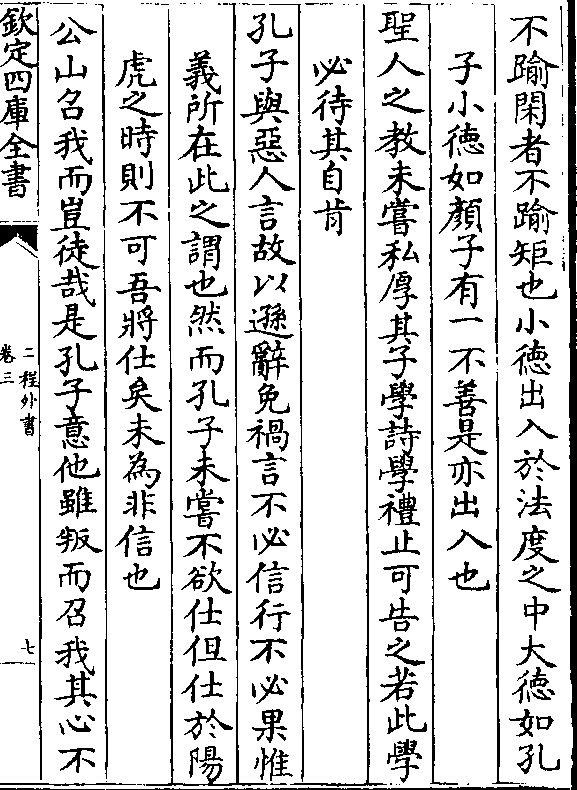 不踰閑者不踰矩也小德出入於法度之中大德如孔
子小德如顏子有一不善是亦出入也
聖人之教未嘗私厚其子學詩學禮止可告之若此學
必待其自肯
孔子與惡人言故以遜辭免禍言不必信行不必果惟
義所在此之謂也然而孔子未嘗不欲仕但仕於陽
虎之時則不可吾將仕矣未為非信也
公山召我而豈徒哉是孔子意他雖叛而召我其心不
欽定四庫全書
二程外書
卷三
七